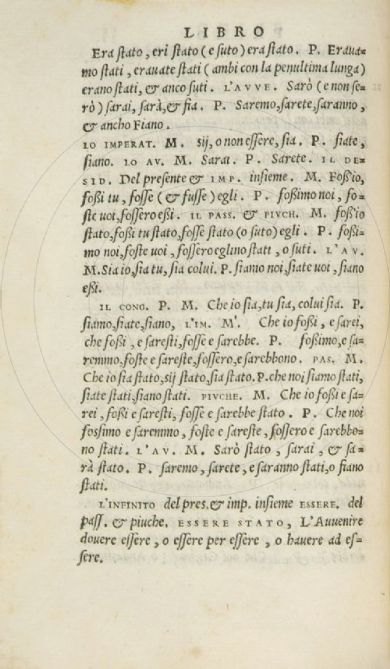 LIBRO
Era ſtato, eri ſtato (e ſuto) era ſtato. P. Erava-
mo ſtati, eravate ſtati (ambi con la penultima lunga)
erano ſtati, & anco ſuti. L'AVVE. Sarò (e non ſe-
rò) ſarai, ſarà, & fia. P. Saremo, ſarete, ſaranno,
& ancho Fiano.
LO IMPERAT. M. sij, o non eſſere, ſia. P. ſiate,
ſiano. LO AV. M. Sarai. P. Sarete. IL DE-
SID. Del preſente & IMP. inſieme. M. Foſſ'io,
foſſi tu, foſſe (& fuſſe) egli. P. foſſimo noi, fo-
ſte uoi, foſſero eſſi. IL PASS. & PIVCH. M. foſſ'io
ſtato, foſſi tu ſtato, foſſe ſtato (o ſuto) egli. P. foſſi-
mo noi, foſte uoi, foſſero eglino ſtati, o ſuti. L'AV.
M. Sia io, ſia tu, ſia colui. P. ſiamo noi, ſiate uoi, ſiano
eſſi.
IL CONG. P. M. Che io ſia, tu ſia, colui ſia. P.
ſiamo, ſiate, ſiano, L'IM. M. Che io foſſi, e ſarei,
che foſſi, e ſareſti, foſſe e ſarebbe. P. foſſimo, e ſa-
remmo, foſte e ſareſte, foſſero, e ſarebbono. PAS. M.
Che io ſia ſtato, sij ſtato, ſia ſtato. P. che noi ſiamo ſtati,
ſiate ſtati, ſiano ſtati. PIVCHE. M. Che io foſſi e ſa-
rei, foſſi e ſareſti, foſſe e ſarebbe ſtato. P. Che noi
foſſimo e ſaremmo, foſte e ſareſte, foſſero e ſarebbo-
no ſtati. L'AV. M. Sarò ſtato, ſarai, & ſa-
rà ſtato. P. ſaremo, ſarete, e ſaranno ſtati, o fiano
ſtati.
L'INFINITO del pres. & imp. inſieme ESSERE. del
paſſ. & piuche. ESSERE STATO, L'Auuenire
douere eſſere, o eſſere per eſſere, o hauere ad eſ-
ſere.